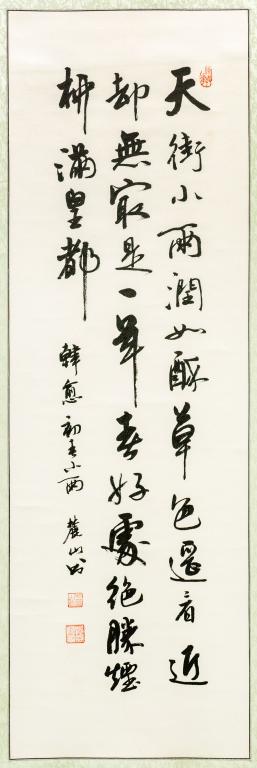 天街小雨潤如酥草色遥看近
却無最是一年春好處絕勝煙
柳滿皇都
韓愈初春小雨 麓山書